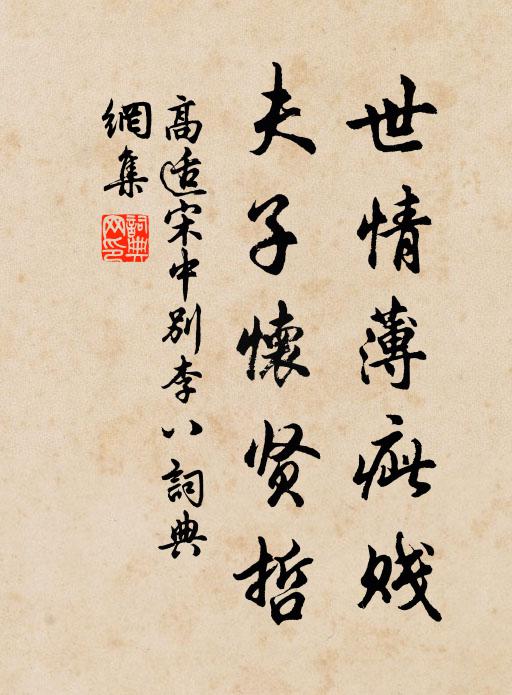 世情薄疵贱
夫子懷贤哲
高适宋中别李八詞典
網集
詞典
网印